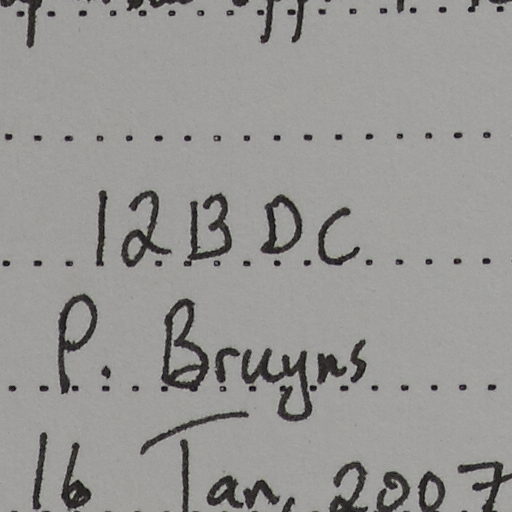 12BDC
P. Bruyns
16 Jan. 2007